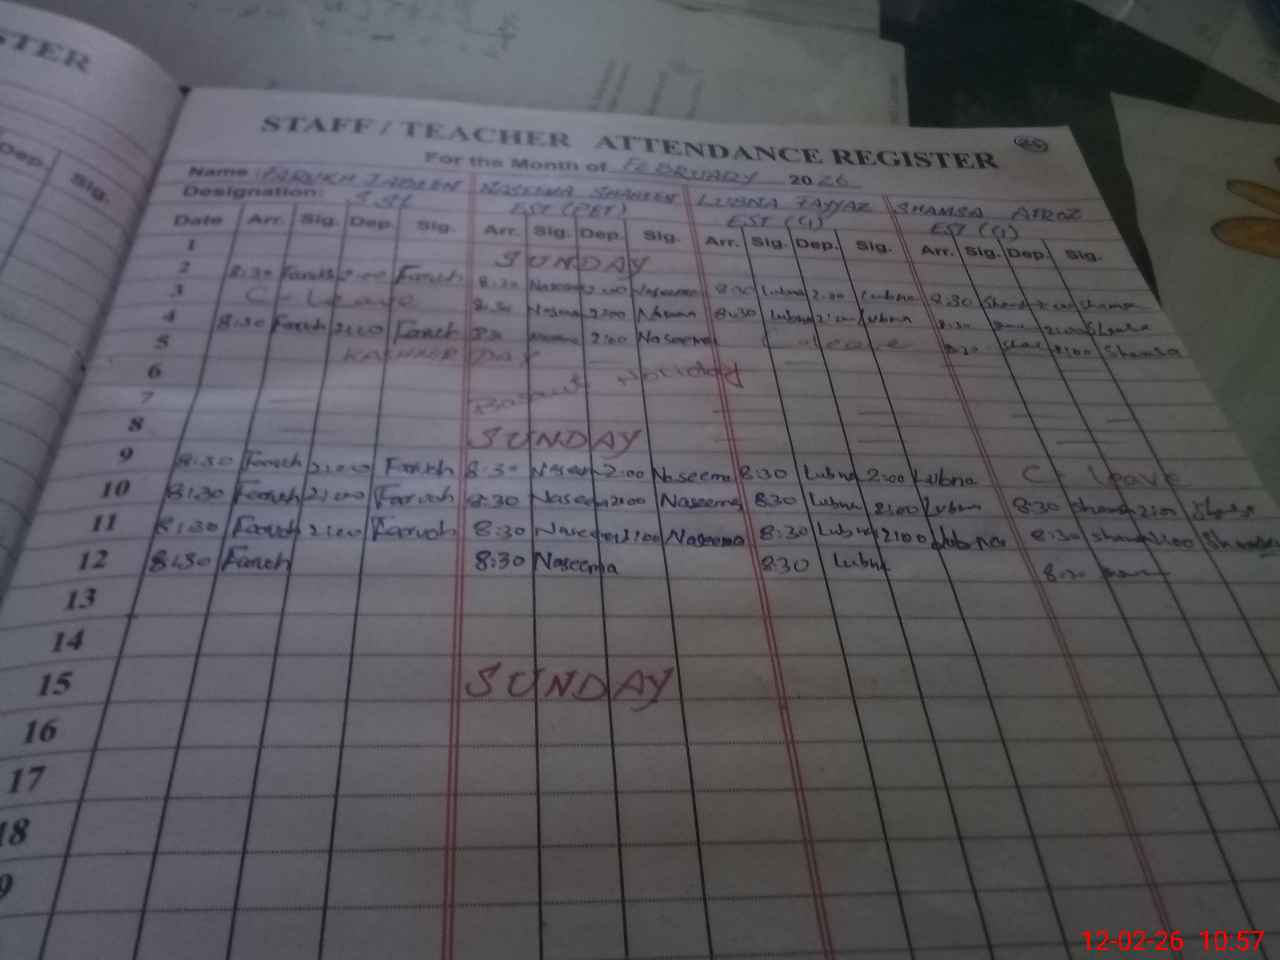 STER
STAFF / TEACHER ATTENDANCE REGISTER
For the Month of FEBRUARY 2026
Name FARUKH JABEEN NASEEMA SHAHEEN LUBNA FAYYAZ SHAMSA AFROZ
Designation: SST EST (PET) EST (G) EST (G)
Dep. Sig.
Date Arr. Sig. Dep. Sig. Arr. Sig. Dep. Sig. Arr. Sig. Dep. Sig. Arr. Sig. Dep. Sig.
1 SUNDAY
2 8:30 Farukh 2:00 Farukh 8:30 Naseema 2:00 Naseema 8:30 Lubna 2:00 Lubna 8:30 Shamsa 2:00 Shamsa
3 C-Leave 8:30 Naseema 2:00 Naseema 8:30 Lubna 2:00 Lubna 8:30 2:00 Shamsa
4 8:30 Farukh 2:00 Farukh 8:30 2:00 Naseema C leave 8:30 2:00 Shamsa
5 KASHMIR DAY
6 Basant Holiday
7
8 SUNDAY
9 8:30 Farukh 2:00 Farukh 8:30 Naseema 2:00 Naseema 8:30 Lubna 2:00 Lubna C leave
10 8:30 Farukh 2:00 Farukh 8:30 Naseema 2:00 Naseema 8:30 Lubna 2:00 Lubna 8:30 Shamsa 2:00
11 8:30 Farukh 2:00 Farukh 8:30 Naseema 2:00 Naseema 8:30 Lubna 2:00 Lubna 8:30 Shamsa 2:00 Shamsa
12 8:30 Farukh 8:30 Naseema 8:30 Lubna 8:30
13
14
15 SUNDAY
16
17
18
9
12-02-26 10:57